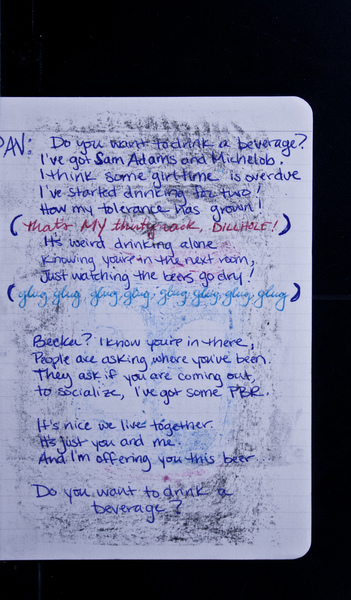 PAV: Do you want to drink a beverage?
I've got Sam Adams and Michelob.
I think some girltime is overdue
I've started drinking for two!
How my tolerance has grown!
(that's MY thirty rack, DILLHOLE!)
It's weird drinking alone
Knowing you're in the next room,
Just watching the beers go dry!
(glug, glug, glug, glug, glug, glug, glug, glug)
Becka? I know you're in there,
People are asking where you've been.
They ask if you are coming out,
to socialize, I've got some PBR.
It's nice we live together.
It's just you and me.
And I'm offering you this beer.
Do you want to drink a
beverage?